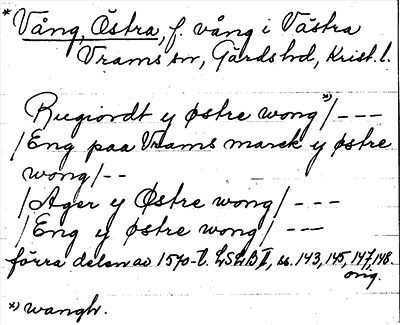 * Vång, Östra, f. vång i Västra
Vrams sn, Gärds hd, Krist. l.
Rugiordt y østre wong *)/ ---
/Eng paa Vrams marck y østre
wong/--
/Ager y Østre wong/ ---
/Eng y østre wong/ ---
förra delen av 1570-t. LSLB II, ss. 143, 145, 147, 148.
orig.
*) wangh.